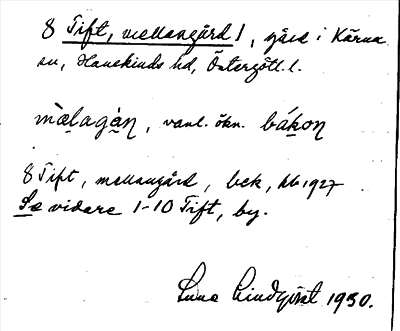 8 Tift, mellangård 1, gård i Kärna
sn, Hanekinds hd, Östergötl. l.
mȁlagȧn, vanl. ökn. bákon
8 Tift, mellangård, bek, hb 1927
Se vidare 1-10 Tift, by.
Lindqvist 1930.